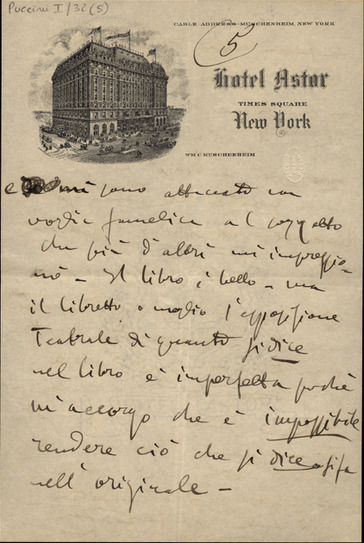 Puccini I / 32 (5)
CABLE ADDRESS-MUSCHENHEIM, NEW YORK
5
Hotel Astor
TIMES SQUARE
New York
WM C MUSCHENHEIM
e mi sono attaccato con
voglia famelica al soggetto
che più d'altri mi impressio-
nò - Il libro è bello - ma
il libretto o meglio l'esposizione
Teatrale di quanto si dice
nel libro è imperfetta poichè
m'accorgo che è impossibile
rendere ciò che si dice
nell'originale -